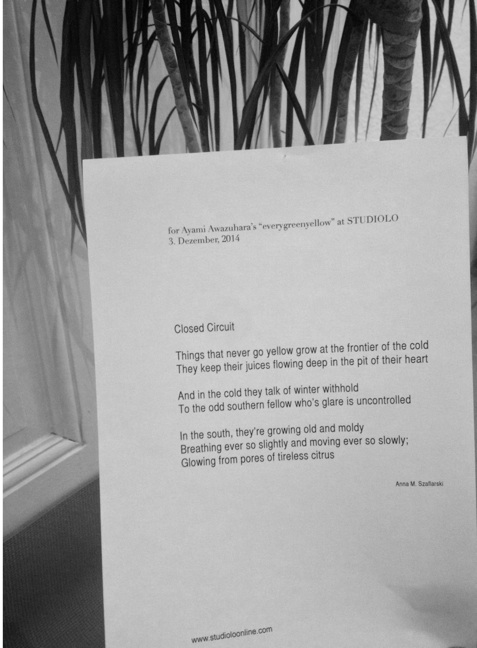 for Ayami Awazuhara's "everygreenyellow" at STUDIOLO
3. Dezember, 2014
Closed Circuit
Things that never go yellow grow at the frontier of the cold
They keep their juices flowing deep in the pit of their heart
And in the cold they talk of winter withhold
To the odd southern fellow who's glare is uncontrolled
In the south, they're growing old and moldy
Breathing ever so slightly and moving ever so slowly;
Glowing from pores of tireless citrus
Anna M. Szaflarski
www.studioloonline.com